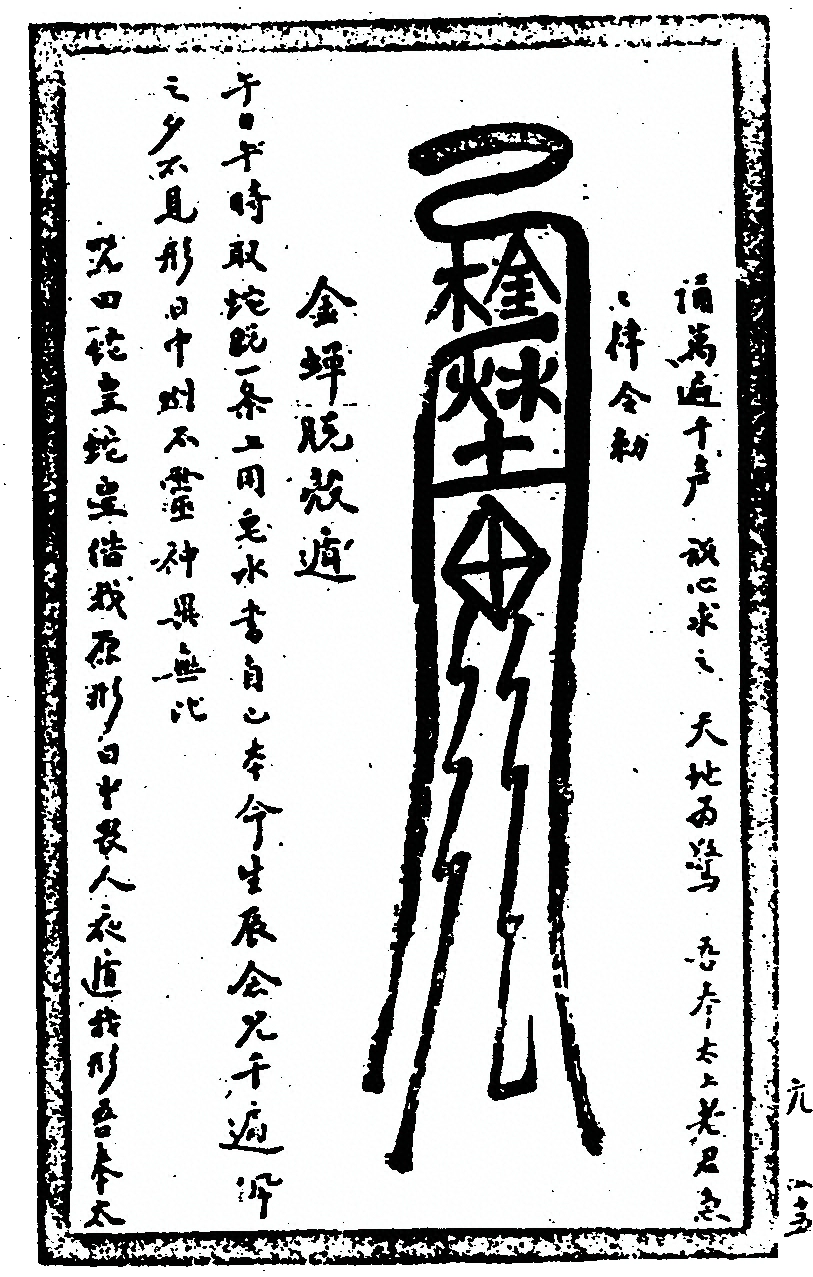 誦萬遍千声 誠心求之 天地而驚 吾奉太上老君急
〻律令勅
金木
水火
土
金蟬脱殼遁
午日午時取蛇脱一条上用皂水書自己本命生辰合咒千遍
之夕不見形日中則不靈神異無比
咒曰蛇皇蛇皇借我原形日中畏人夜遁我形吾奉太